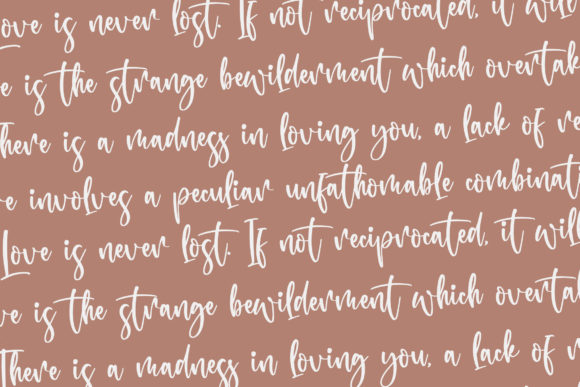 ove is never lost. If not reciprocated, it will
e is the strange bewilderment which overtak
here is a madness in loving you, a lack of re
e involves a peculiar unfathomable combinati
Love is never lost. If not reciprocated, it will
ve is the strange bewilderment which overtak
There is a madness in loving you, a lack of r